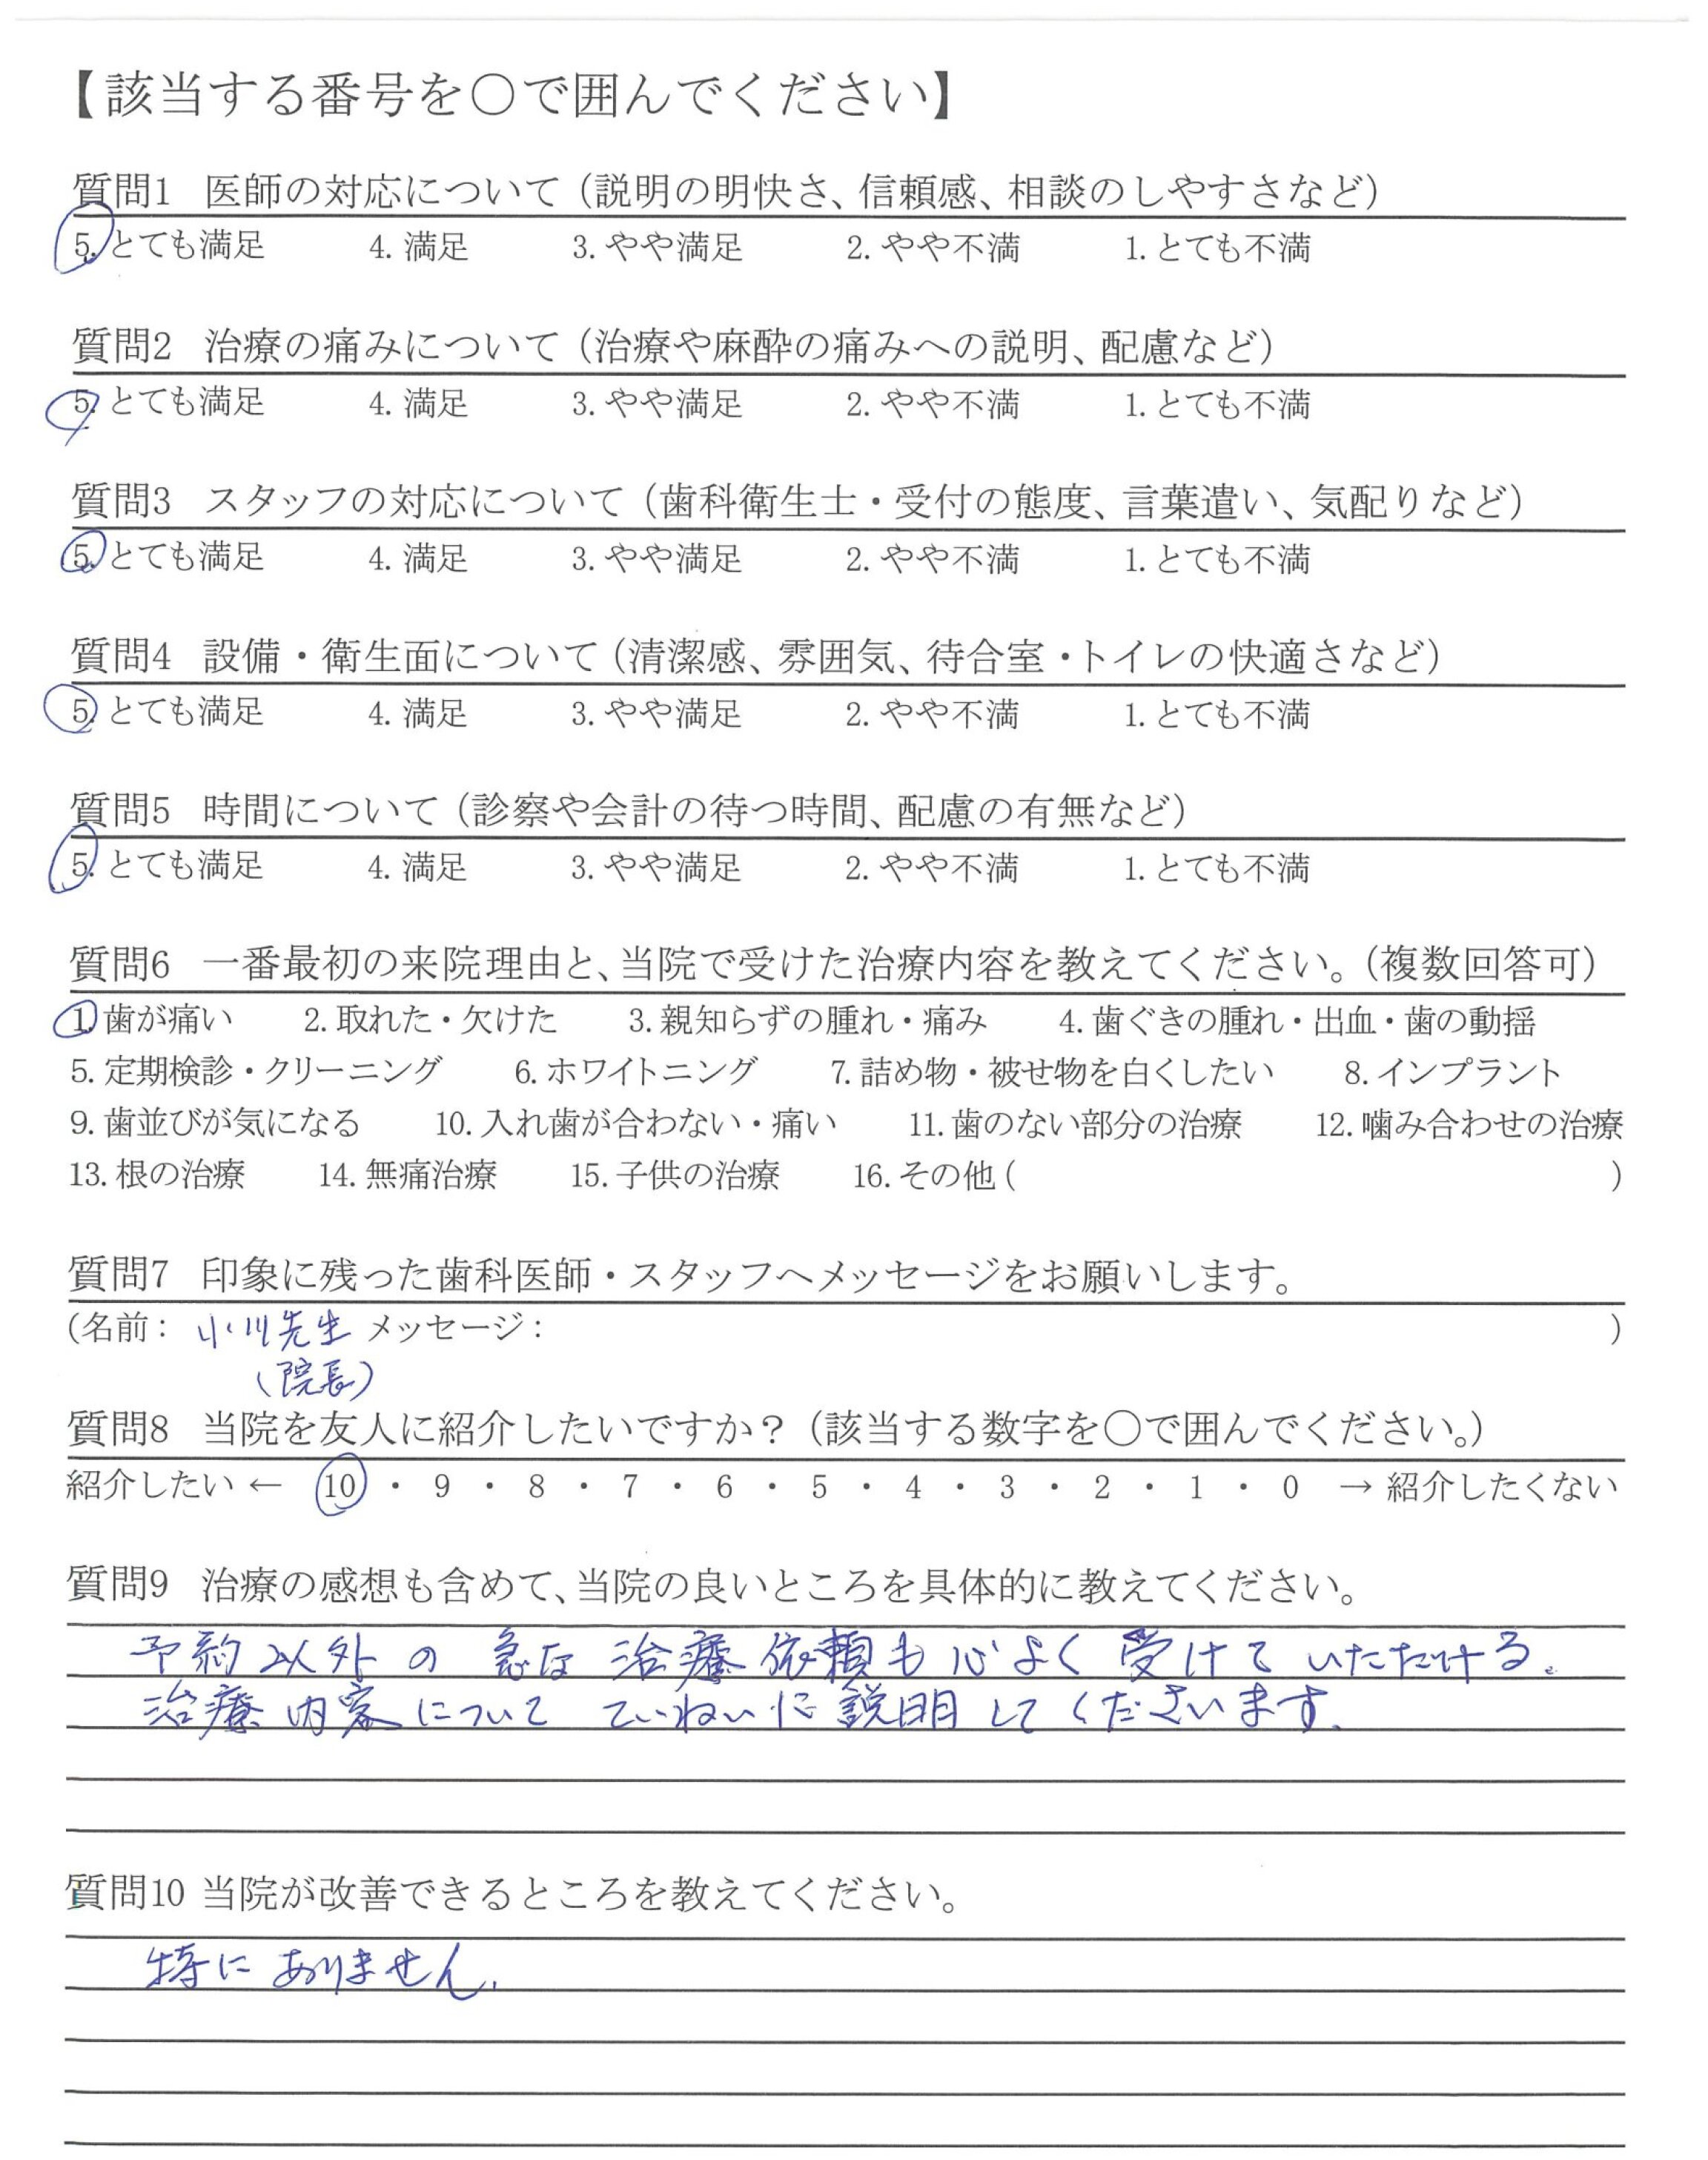 【該当する番号を〇で囲んでください】
質問1 医師の対応について（説明の明快さ、信頼感、相談のしやすさなど）
5. とても満足 4. 満足 3. やや満足 2. やや不満 1. とても不満
質問2 治療の痛みについて（治療や麻酔の痛みへの説明、配慮など）
5. とても満足 4. 満足 3. やや満足 2. やや不満 1. とても不満
質問3 スタッフの対応について（歯科衛生士・受付の態度、言葉遣い、気配りなど）
5. とても満足 4. 満足 3. やや満足 2. やや不満 1. とても不満
質問4 設備・衛生面について（清潔感、雰囲気、待合室・トイレの快適さなど）
5. とても満足 4. 満足 3. やや満足 2. やや不満 1. とても不満
質問5 時間について（診察や会計の待つ時間、配慮の有無など）
5. とても満足 4. 満足 3. やや満足 2. やや不満 1. とても不満
質問6 一番最初の来院理由と、当院で受けた治療内容を教えてください。（複数回答可）
1. 歯が痛い 2. 取れた・欠けた 3. 親知らずの腫れ・痛み 4. 歯ぐきの腫れ・出血・歯の動揺
5. 定期検診・クリーニング 6. ホワイトニング 7. 詰め物・被せ物を白くしたい 8. インプラント
9. 歯並びが気になる 10. 入れ歯が合わない・痛い 11. 歯のない部分の治療 12. 噛み合わせの治療
13. 根の治療 14. 無痛治療 15. 子供の治療 16. その他（ ）
質問7 印象に残った歯科医師・スタッフへメッセージをお願いします。
（名前： 小川先生 メッセージ： ）
（院長）
質問8 当院を友人に紹介したいですか？（該当する数字を〇で囲んでください。）
紹介したい ← 10 ・ 9 ・ 8 ・ 7 ・ 6 ・ 5 ・ 4 ・ 3 ・ 2 ・ 1 ・ 0 → 紹介したくない
質問9 治療の感想も含めて、当院の良いところを具体的に教えてください。
予約以外の急な治療依頼も心よく受けていただける。
治療内容についてていねいに説明してくださいます。
質問10 当院が改善できるところを教えてください。
特にありません。